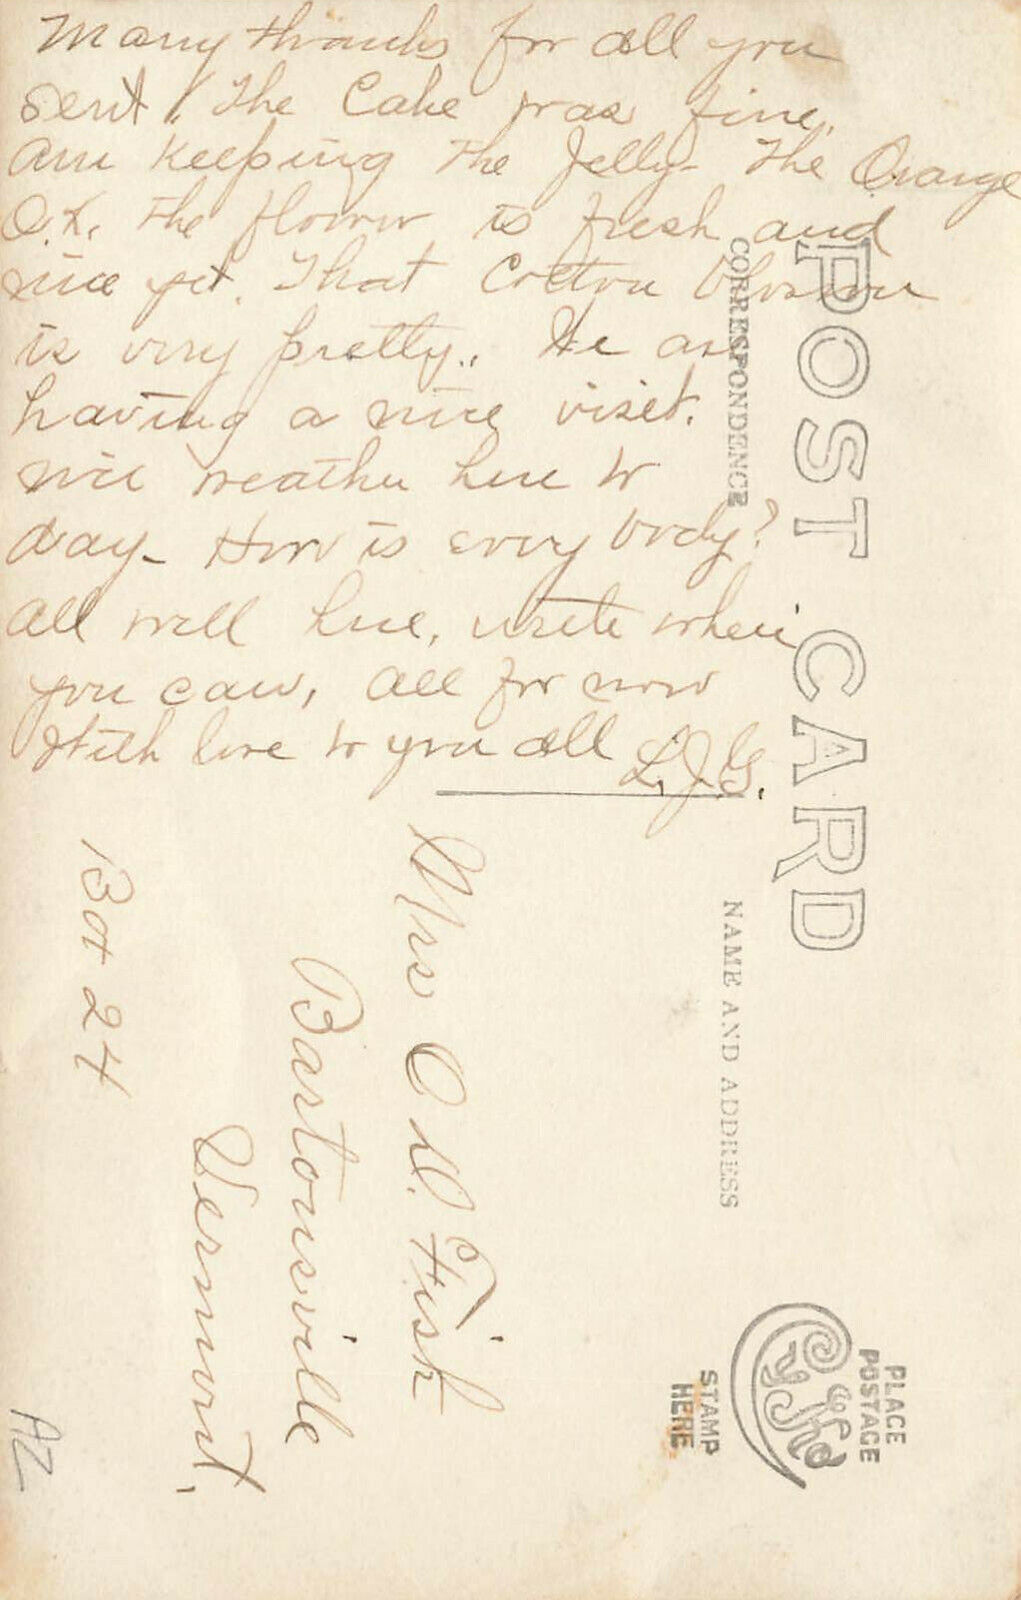 Many thanks for all you
sent, The Cake was fine.
Am keeping the Jelly- The Orange
O.K. The flower is fresh and
nice yet. That Cotton blossom
is very pretty.. We are
having a nice visit.
nice weather here to
day- How is every body?
All well here, write when
you can, all for now
With love to you all L.J.G.
POST CARD
CORRESPONDENCE
NAME AND ADDRESS
PLACE
POSTAGE
STAMP
HERE
Mrs O D. Fish
Bartonsville
Vermont,
Box 24
AZ